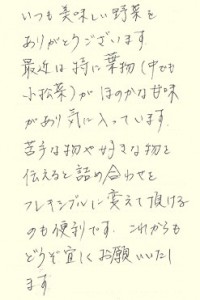 いつも美味しい野菜を
ありがとうございます.
最近は特に葉物(中でも
小松菜)がほのかな甘味
があり気に入っています.
苦手な物や好きな物を
伝えると詰め合わせを
フレキシブルに変えて頂ける
のも便利です. これからも
どうぞ宜しくお願いいたし
ます